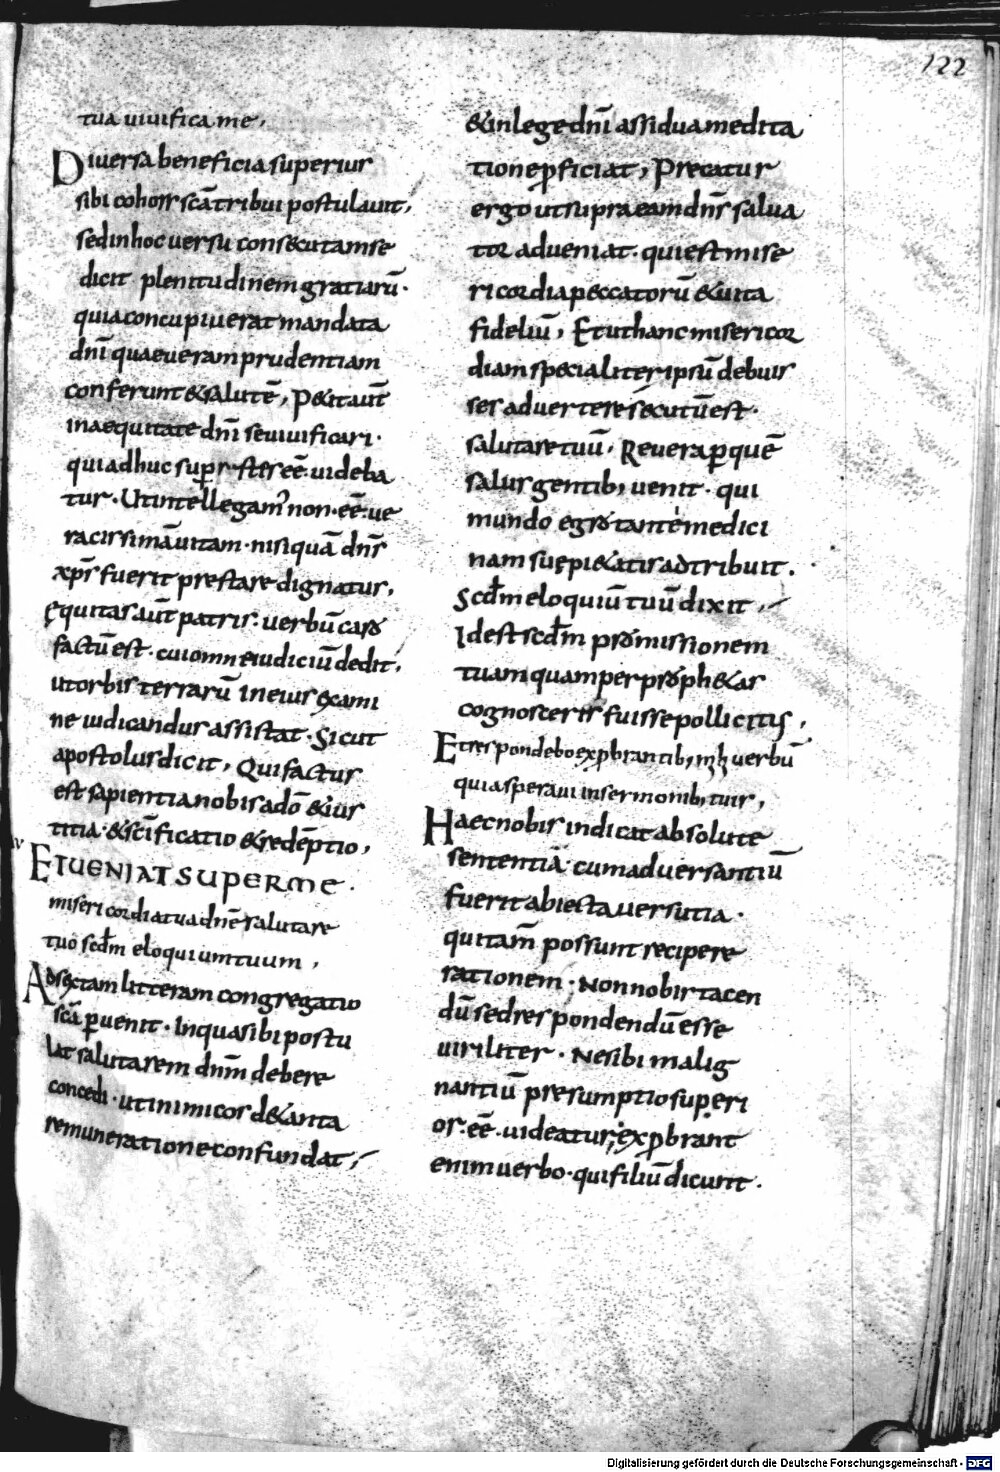 122
tua uiuifica me.
Diuersa beneficia superius
sibi cohors sc̄a tribui postulauit,
sed in hoc uersu consecutam se
dicit plenitudinem gratiarū.
quia concupiuerat mandata
dn̄i quae ueram prudentiam
conferunt & salutē, P&it aut̄
in aequitate dn̄i se uiuificari.
qui adhuc superstes eē uideba
tur. Ut intellegam' non eē ue
racissimā uitam. nisi quā dn̄s
xp̄s fuerit prestare dignatus,
Ęquitas aut̄ patris. uerbū caro
factū est. cui omne iudiciū dedit,
ut orbis terrarū in eius exami
ne iudicandus assistat. Sicut
apostolus dicit, Qui factus
est sapientia nobis a dō & ius
titia. & sc̄ificatio & redēptio,
ETUENIAT SUPER ME.
misericordia tua dn̄e salutare
tuō scd̄m eloquium tuum,
Ad sextam litteram congregatio
sc̄a ꝑuenit. In qua sibi postu
lat salutarem dn̄m debere
concedi. ut inimicos de tanta
remuneratione confundat,
& in lege dn̄i assidua medita
tione ꝓficiat, Precatur
ergo ut supra eam dn̄s salua
tor adueniat. qui est mise
ricordia peccatorū & uita
fideliū, Et ut hanc misericor
diam specialiter ipsū debuis
ses aduertere secutū est.
salutare tuū. Reuera ꝑ quē
salus gentib; uenit. qui
mundo egrotante medici
nam suę pi&atis adtribuit.
Scd̄m eloquiū tuū dixit,
Id est scd̄m promissionem
tuam quam per proph&as
cognosceris fuisse pollicitus,
Et respondebo exꝓbrantib; mihi uerbū
quia speraui in sermonib; tuis,
Haec nobis indicat absolute
sententiā. cum aduersantiū
fuerit abiecta uersutia.
qui tam̄ possunt recipere
rationem. Non nobis tacen
dū sed respondendū esse
uiriliter. Ne sibi malig
nantiū presumptio superi
or. eē. uideatur; exꝓbrant
enim uerbo. qui filiū dicunt.
Digitalisierung gefördert durch die Deutsche Forschungsgemeinschaft - DFG